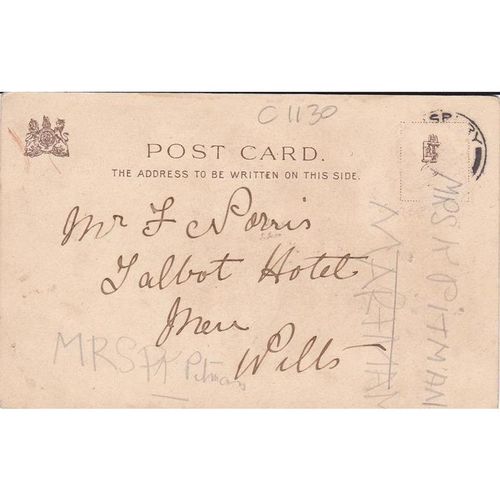 C1130
POST CARD.
THE ADDRESS TO BE WRITTEN ON THIS SIDE.
Mr F Norris
Talbot Hotel
Mere
Wilts
MRS Pitman
MRS K PITMAN